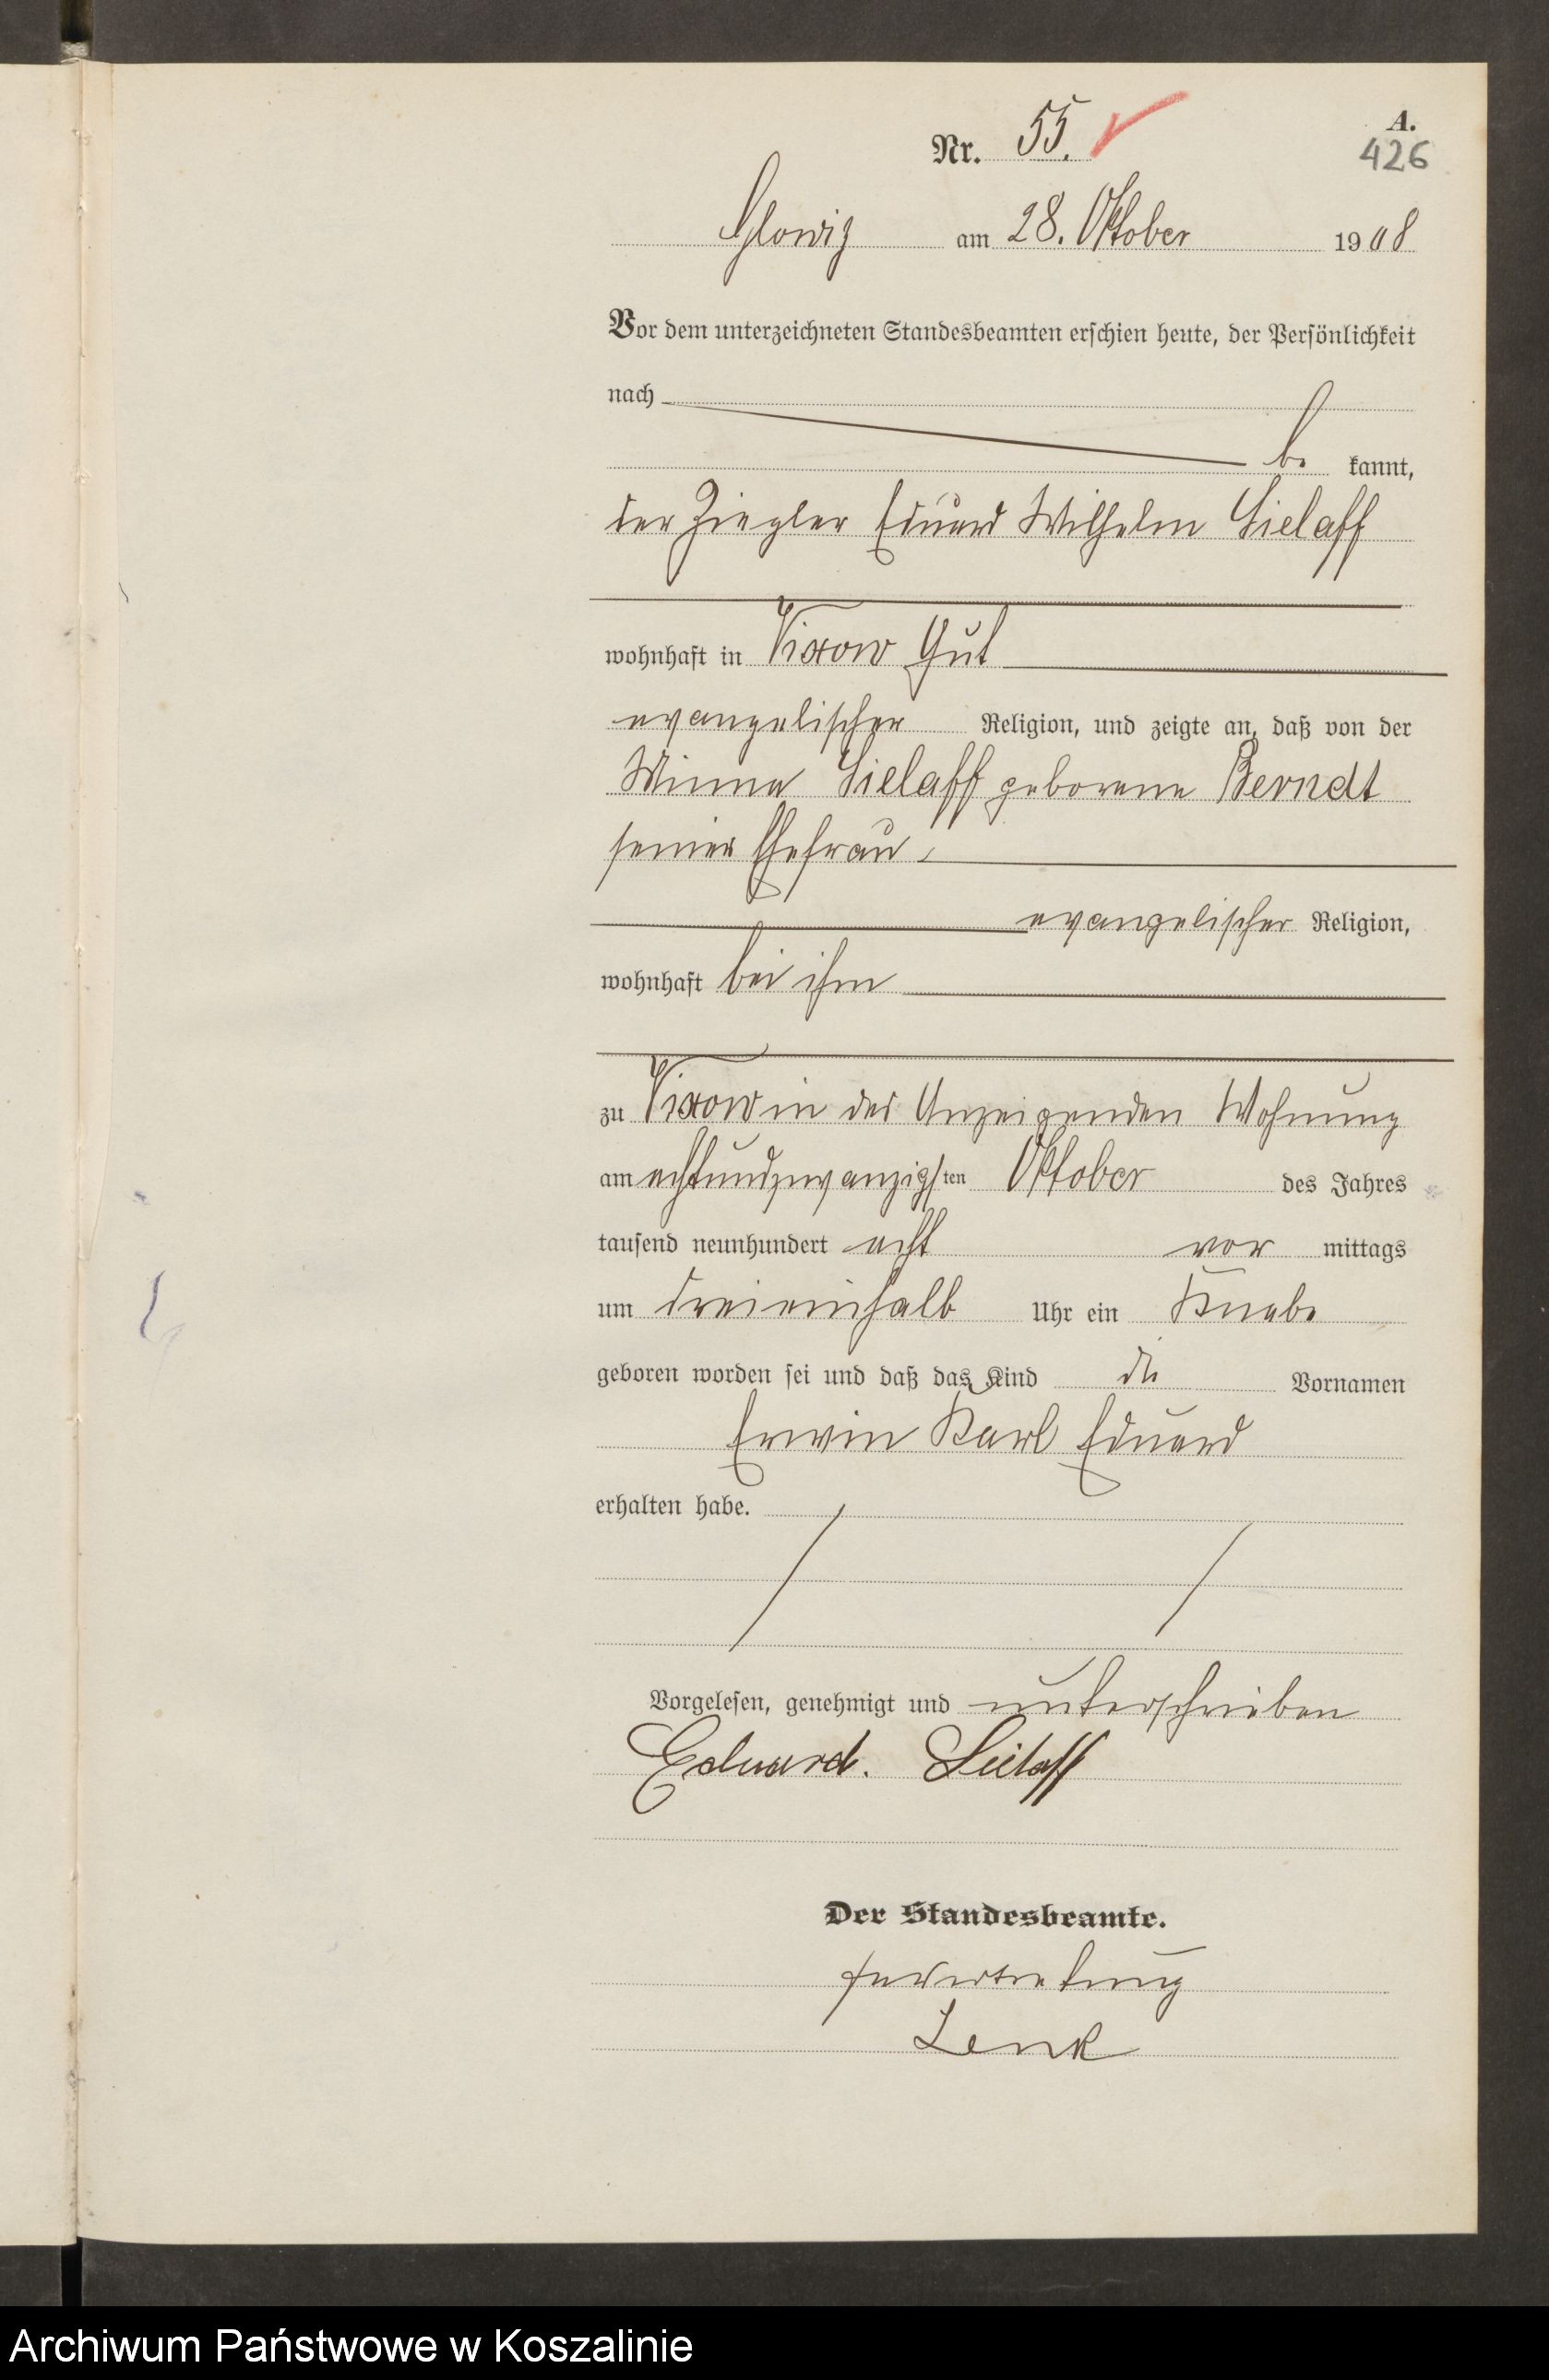 A.
Nr. 55.
426
Glowitz am 28. Oktober 1908
Vor dem unterzeichneten Standesbeamten erschien heute, der Persönlichkeit
nach
be kannt,
der Ziegler Eduard Wilhelm Sielaff
wohnhaft in Vixow Gut
evangelischer Religion, und zeigte an, daß von der
Minna Sielaff geborene Berndt
seiner Ehefrau,
evangelischer Religion,
wohnhaft bei ihm
zu Vixow in des Anzeigenden Wohnung
am achtundzwanzigsten Oktober des Jahres
tausend neunhundert acht vor mittags
um dreieinhalb Uhr ein Knabe
geboren worden sei und daß das Kind die Vornamen
Erwin Karl Eduard
erhalten habe.
Vorgelesen, genehmigt und unterschrieben
Eduard. Sielaff
Der Standesbeamte.
In Vertretung
Lenk
Archiwum Państwowe w Koszalinie